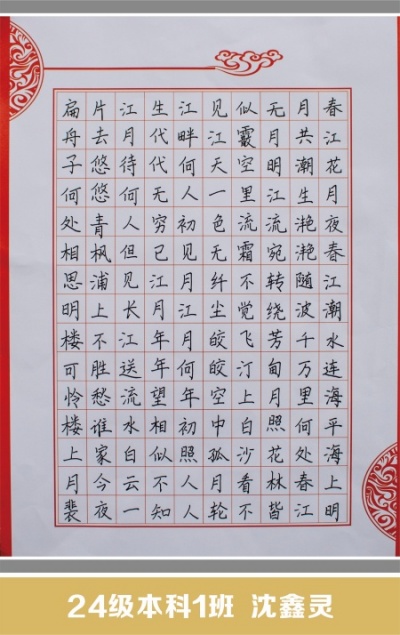 春江花月夜春江潮水连海平海上明
月共潮生滟滟随波千万里何处春江
无月明江流宛转绕芳甸月照花林皆
似霰空里流霜不觉飞汀上白沙看不
见江天一色无纤尘皎皎空中孤月轮
江畔何人初见月江月何年初照人人
生代代无穷已江月年年望相似不知
江月待何人但见长江送流水白云一
片去悠悠青枫浦上不胜愁谁家今夜
扁舟子何处相思明楼可怜楼上月裴
24级本科1班 沈鑫灵